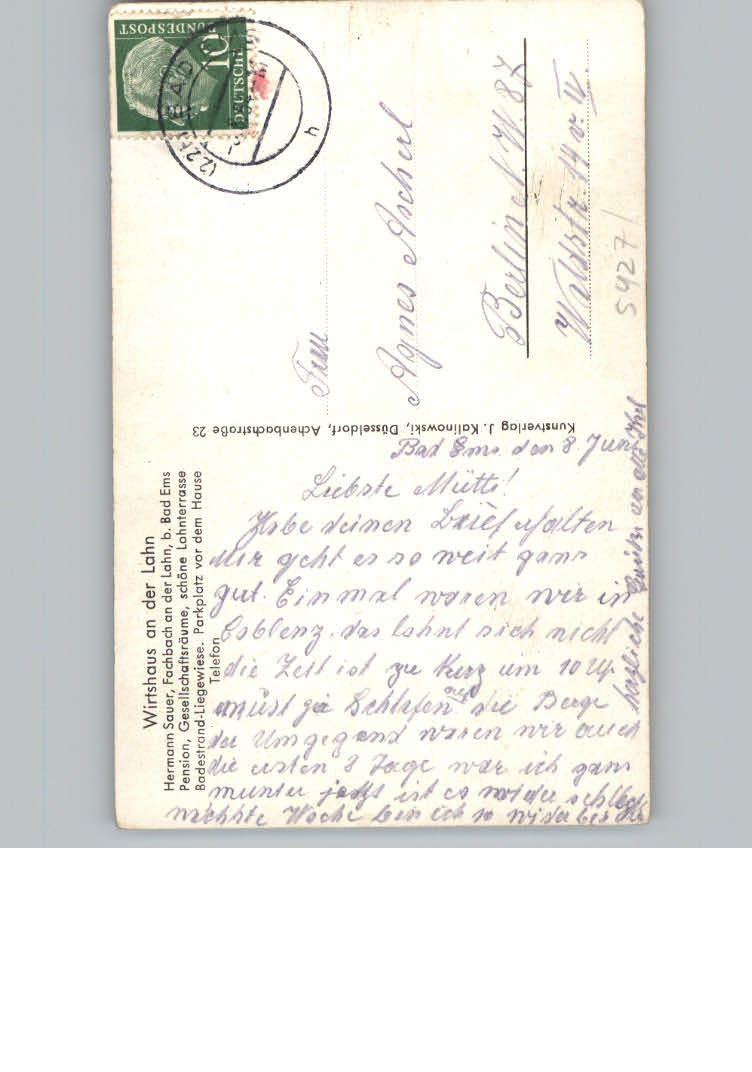 Wirtshaus an der Lahn
Hermann Sauer, Fachbach an der Lahn, b. Bad Ems
Pension, Gesellschaftsräume, schöne Lahnterrasse
Badestrand-Liegewiese. Parkplatz vor dem Hause
Telefon
Bad Ems. den 8 Juni
Liebste Mutti!
Habe deinen Brief erhalten
Mir geht es so weit ganz
gut. Einmal waren wir in
Coblenz. das lohnt sich nicht
die Zeit ist zu kurz um 10 Uhr
müst Schlafen die Berge
der Umgegend waren wir auch
die ersten 8 Tage war ich ganz
munter ist es wider
nächste Woche bin ich so wider bei
herzliche an
Kunstverlag J. Kalinowski, Düsseldorf, Achenbachstraße 23
DEUTSCHE
BUNDESPOST
10
(22
BAD
h
Frau
Agnes Ascherl
Berlin N.W. 87
Waldstr. 14 v. IV
5427/